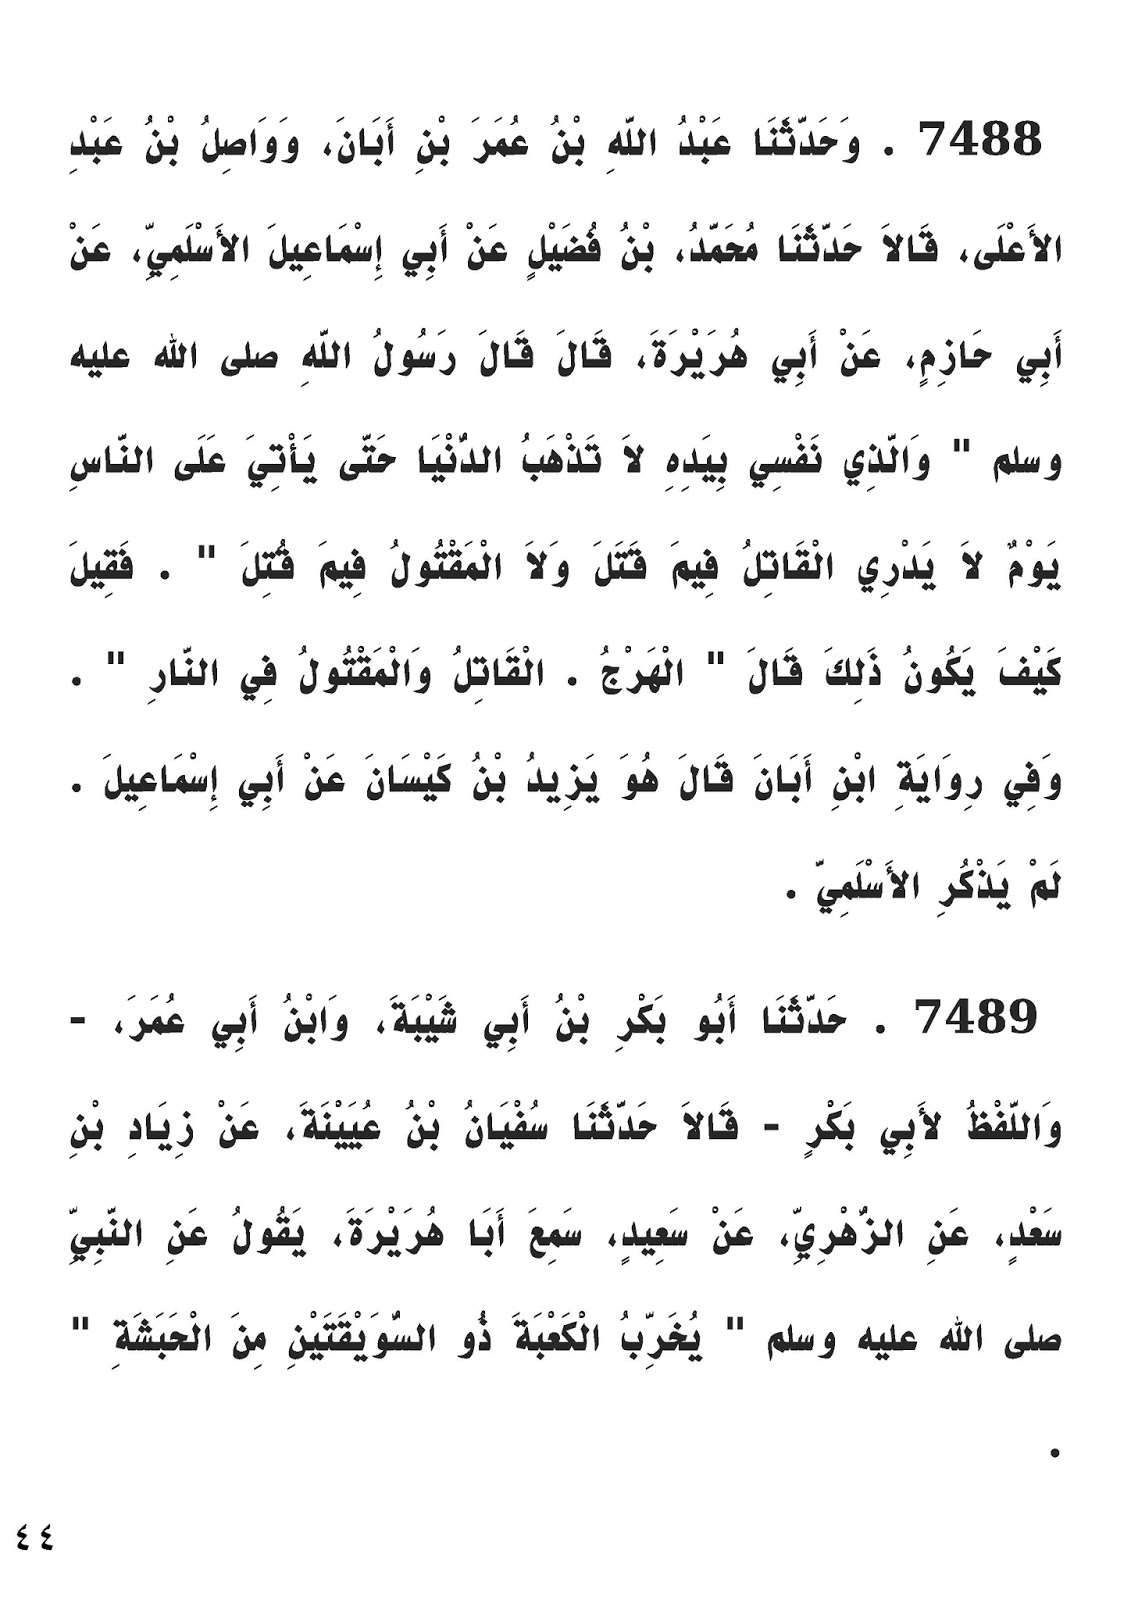 7488 . وَحَدَّثَنَا عَبْدُ اللَّهِ بْنُ عُمَرَ بْنِ أَبَانَ، وَوَاصِلُ بْنُ عَبْدِ
الأَعْلَى، قَالاَ حَدَّثَنَا مُحَمَّدُ، بْنُ فُضَيْلٍ عَنْ أَبِي إِسْمَاعِيلَ الأَسْلَمِيِّ، عَنْ
أَبِي حَازِمٍ، عَنْ أَبِي هُرَيْرَةَ، قَالَ قَالَ رَسُولُ اللَّهِ صلى الله عليه
وسلم " وَالَّذِي نَفْسِي بِيَدِهِ لاَ تَذْهَبُ الدُّنْيَا حَتَّى يَأْتِيَ عَلَى النَّاسِ
يَوْمٌ لاَ يَدْرِي الْقَاتِلُ فِيمَ قَتَلَ وَلاَ الْمَقْتُولُ فِيمَ قُتِلَ " . فَقِيلَ
كَيْفَ يَكُونُ ذَلِكَ قَالَ " الْهَرْجُ . الْقَاتِلُ وَالْمَقْتُولُ فِي النَّارِ " .
وَفِي رِوَايَةِ ابْنِ أَبَانَ قَالَ هُوَ يَزِيدُ بْنُ كَيْسَانَ عَنْ أَبِي إِسْمَاعِيلَ .
لَمْ يَذْكُرِ الأَسْلَمِيَّ .
7489 . حَدَّثَنَا أَبُو بَكْرِ بْنُ أَبِي شَيْبَةَ، وَابْنُ أَبِي عُمَرَ، -
وَاللَّفْظُ لأَبِي بَكْرٍ - قَالاَ حَدَّثَنَا سُفْيَانُ بْنُ عُيَيْنَةَ، عَنْ زِيَادِ بْنِ
سَعْدٍ، عَنِ الزُّهْرِيِّ، عَنْ سَعِيدٍ، سَمِعَ أَبَا هُرَيْرَةَ، يَقُولُ عَنِ النَّبِيِّ
صلى الله عليه وسلم " يُخَرِّبُ الْكَعْبَةَ ذُو السُّوَيْقَتَيْنِ مِنَ الْحَبَشَةِ "
.
٤٤